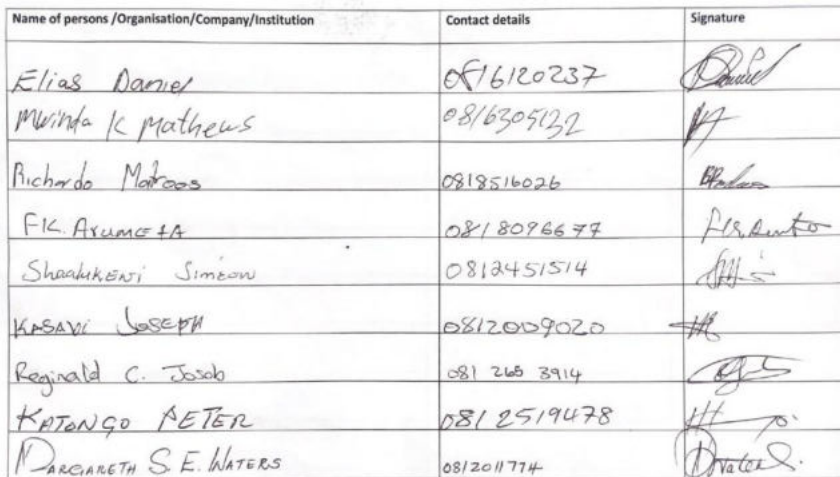 Name of persons /Organisation/Company/Institution Contact details Signature
Elias Daniel 0816120237
Mwinda K Mathews 0816305132
Richardo Matroos 0818516026
FK. 0818096677
Shaalukeni Simeon 0812451514
KASAVI JOSEPH 0812009020
Reginald C. Josob 081 265 3914
KATONGO PETER 0812519478
MARGARETH S. E. WATERS 0812011774